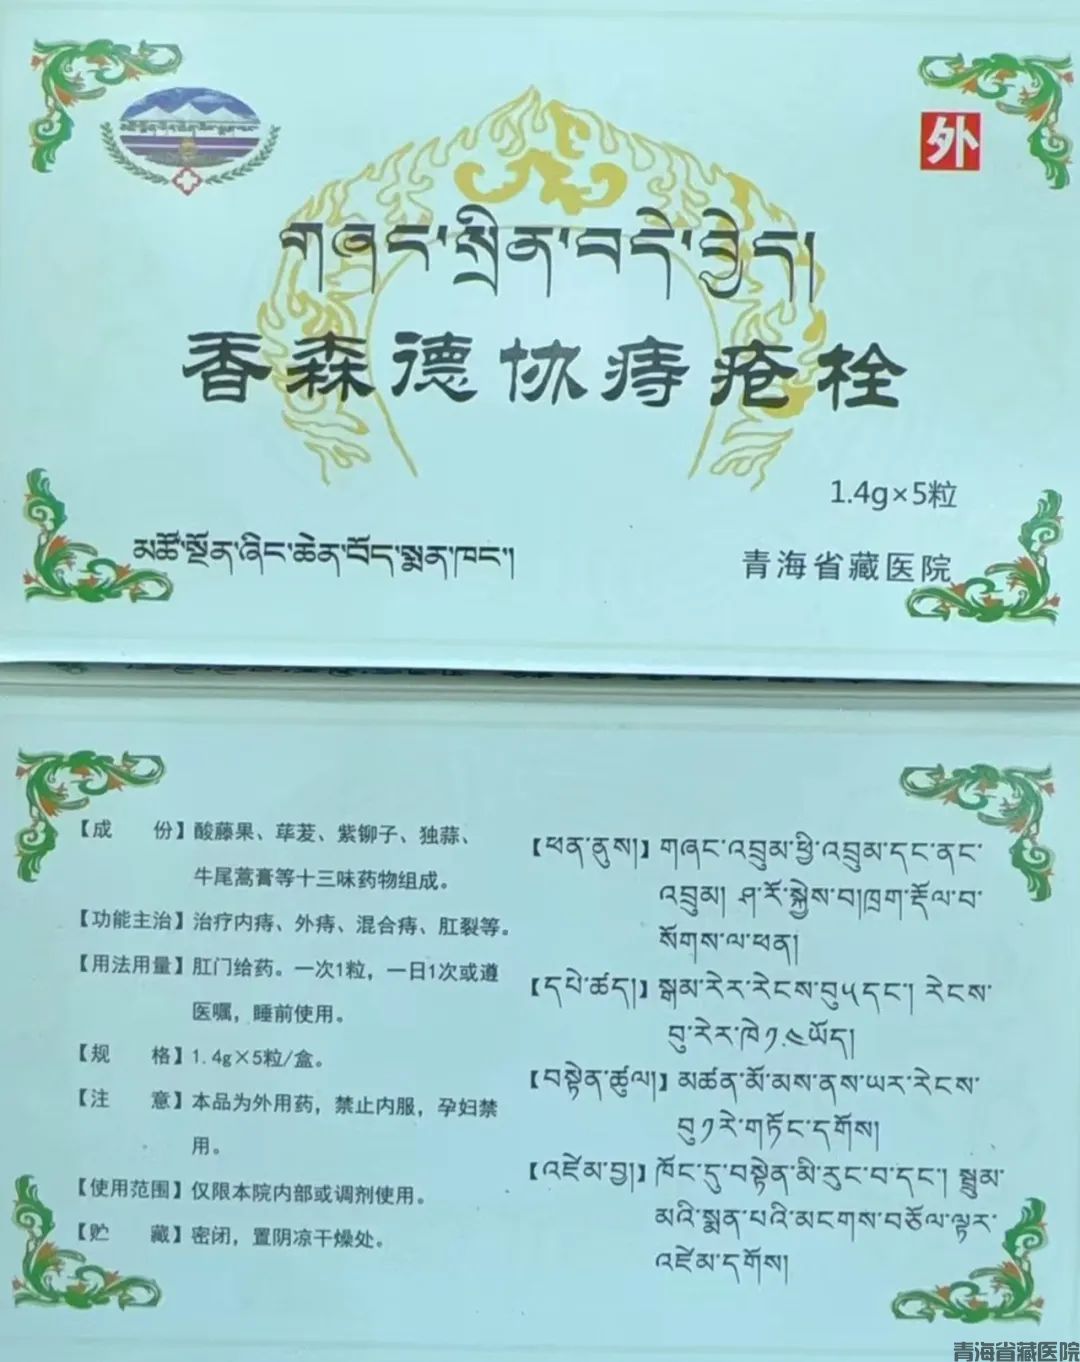 外
གཞང་སྲིན་བདེ་བྱེད།
香森德协痔疮栓
1.4g×5粒
མཚོ་སྔོན་ཞིང་ཆེན་བོད་སྨན་ཁང་།
青海省藏医院
【成 份】酸藤果、荜茇、紫铆子、独蒜、
牛尾蒿膏等十三味药物组成。
【功能主治】治疗内痔、外痔、混合痔、肛裂等。
【用法用量】肛门给药。一次1粒，一日1次或遵
医嘱，睡前使用。
【规 格】1.4g×5粒/盒。
【注 意】本品为外用药，禁止内服，孕妇禁
用。
【使用范围】仅限本院内部或调剂使用。
【贮 藏】密闭，置阴凉干燥处。
【ཕན་ནུས།】གཞང་འབྲུམ་ཕྱི་འབྲུམ་དང་ནང་
འབྲུམ། ཤ་རོ་སྐྱེས་བ།ཁྲག་རྡོལ་བ་
སོགས་ལ་ཕན།
【དཔེ་ཚད།】སྒམ་རེར་རེངས་བུ༥དང་། རེངས་
བུ་རེར་ཁེ༡.༤ཡོད།
【བསྟེན་ཚུལ།】མཚན་མོ་མས་ནས་ཡར་རེངས་
བུ༡རེ་གཏོང་དགོས།
【འཛེམ་བྱ།】ཁོང་དུ་བསྟེན་མི་རུང་བ་དང་། སྦྲུམ་
མའི་སྨན་པའི་མངགས་བཅོལ་ལྟར་
འཛེམ་དགོས།
青海省藏医院